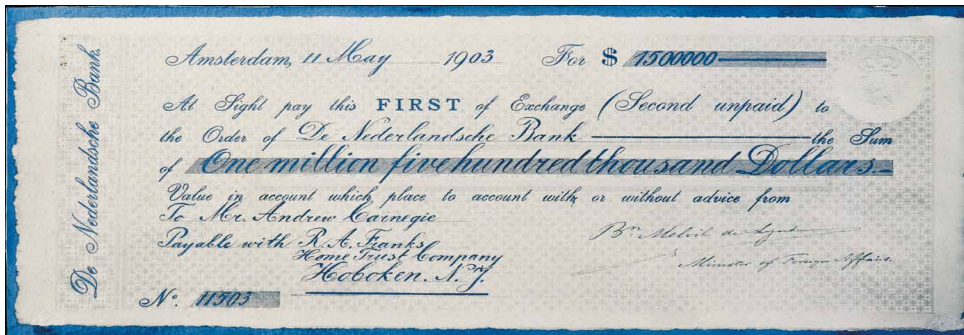 De Nederlandsche Bank.
Amsterdam, 11 May 1903 For $ 1500000
At Sight pay this FIRST of Exchange (Second unpaid) to
the Order of De Nederlandsche Bank the Sum
of One million five hundred thousand Dollars.
Value in account which place to account with or without advice from
To Mr. Andrew Carnegie
Payable with R. A. Franks
Home Trust Company
Hoboken. N. J.
Bn Melvil de
Minister of Foreign Affairs.
No. 11503